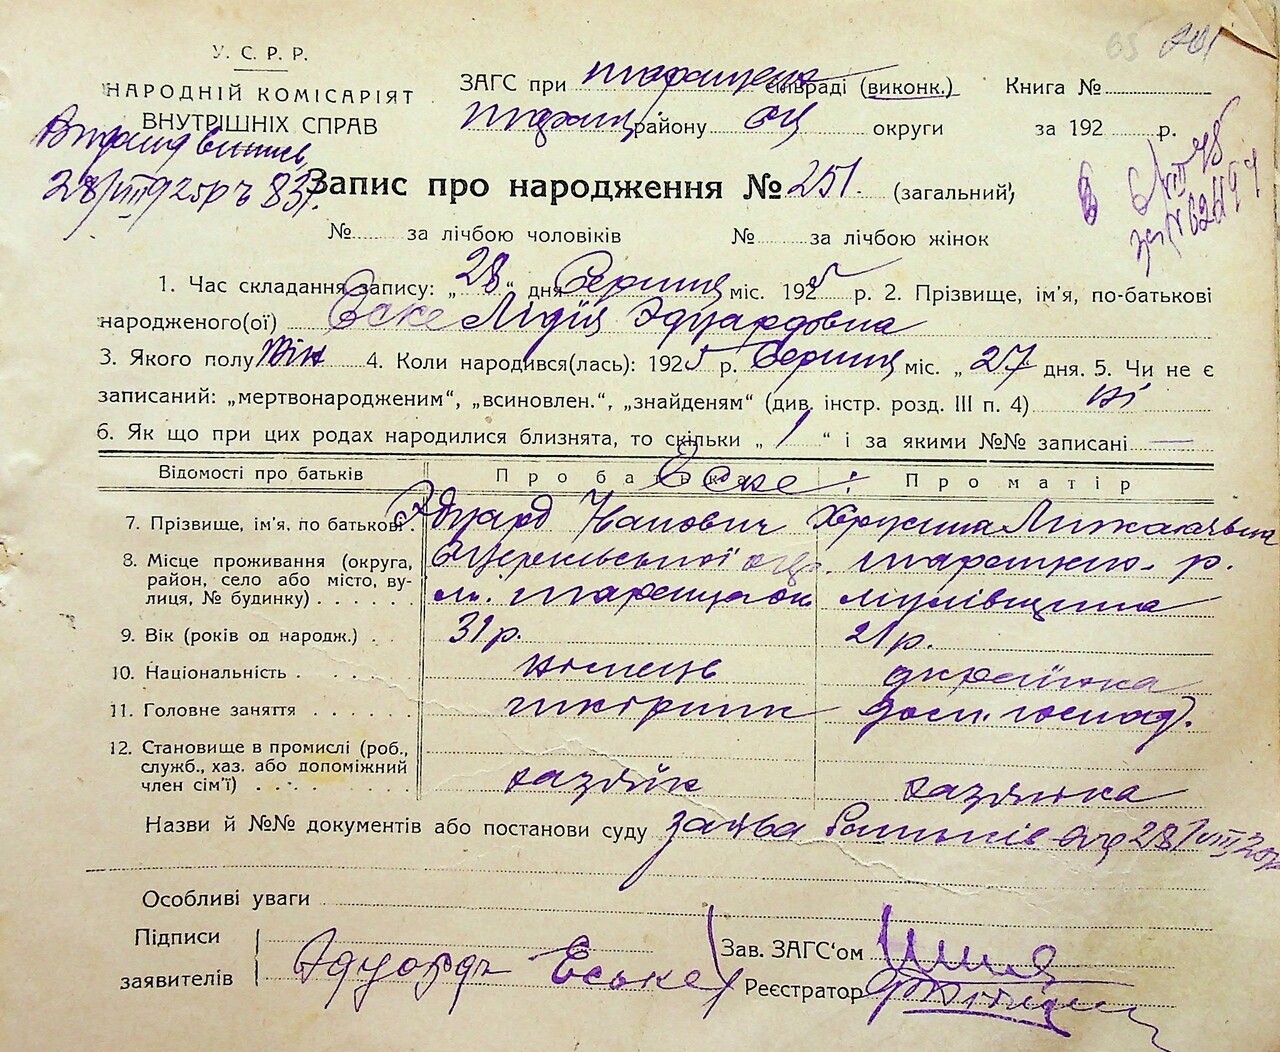 У. С. Р. Р.
НАРОДНІЙ КОМІСАРІЯТ
ВНУТРІШНІХ СПРАВ
ЗАГС при сільраді (виконк.)
району округи
Книга №
за 192 р.
28/VIII 25р № 831.
Запис про народження № 251. (загальний)
№ за лічбою чоловіків № за лічбою жінок
1. Час складання запису: „28“ дня Серпня міс. 1925 р. 2. Прізвище, ім'я, по-батькові
народженого(ої) Еске Лідія Эдуардовна
3. Якого полу жін 4. Коли народився(лась): 1925 р. Серпня міс. „27 дня. 5. Чи не є
записаний: „мертвонародженим“, „всиновлен.“, „знайденям“ (див. інстр. розд. III п. 4) ні
6. Як що при цих родах народилися близнята, то скільки „1“ і за якими №№ записані —
Відомості про батьків Про батька Про матір
Еске:
7. Прізвище, ім'я, по батькові. Эдуард Иванович
8. Місце проживання (округа,
район, село або місто, ву-
лиця, № будинку)
9. Вік (років од народж.) 31 р. 21 р.
10. Національність німець українка
11. Головне заняття дом. господ.
12. Становище в промислі (роб.,
служб., хаз. або допоміжний
член сім'ї) хазяїн хазяйка
Назви й №№ документів або постанови суду заява 28/VIII
Особливі уваги
Підписи
заявителів Эдуардъ Еське
Зав. ЗАГС'ом
Реєстратор